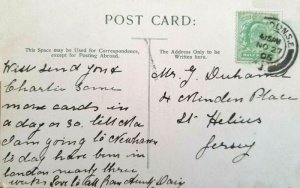 POST CARD:
This Space may be Used for Correspondence, except for Posting Abroad.
The Address Only to be Written here.
4.15AM
NO 27
05
Will send you &
Charlie some
more cards in
a day or so.
I am going to Newhaven
to day have been in
London nearly three
weeks Love to all from Aunty
Mr. G. Duhamel
4 Minden Place
St Heliers
Jersey